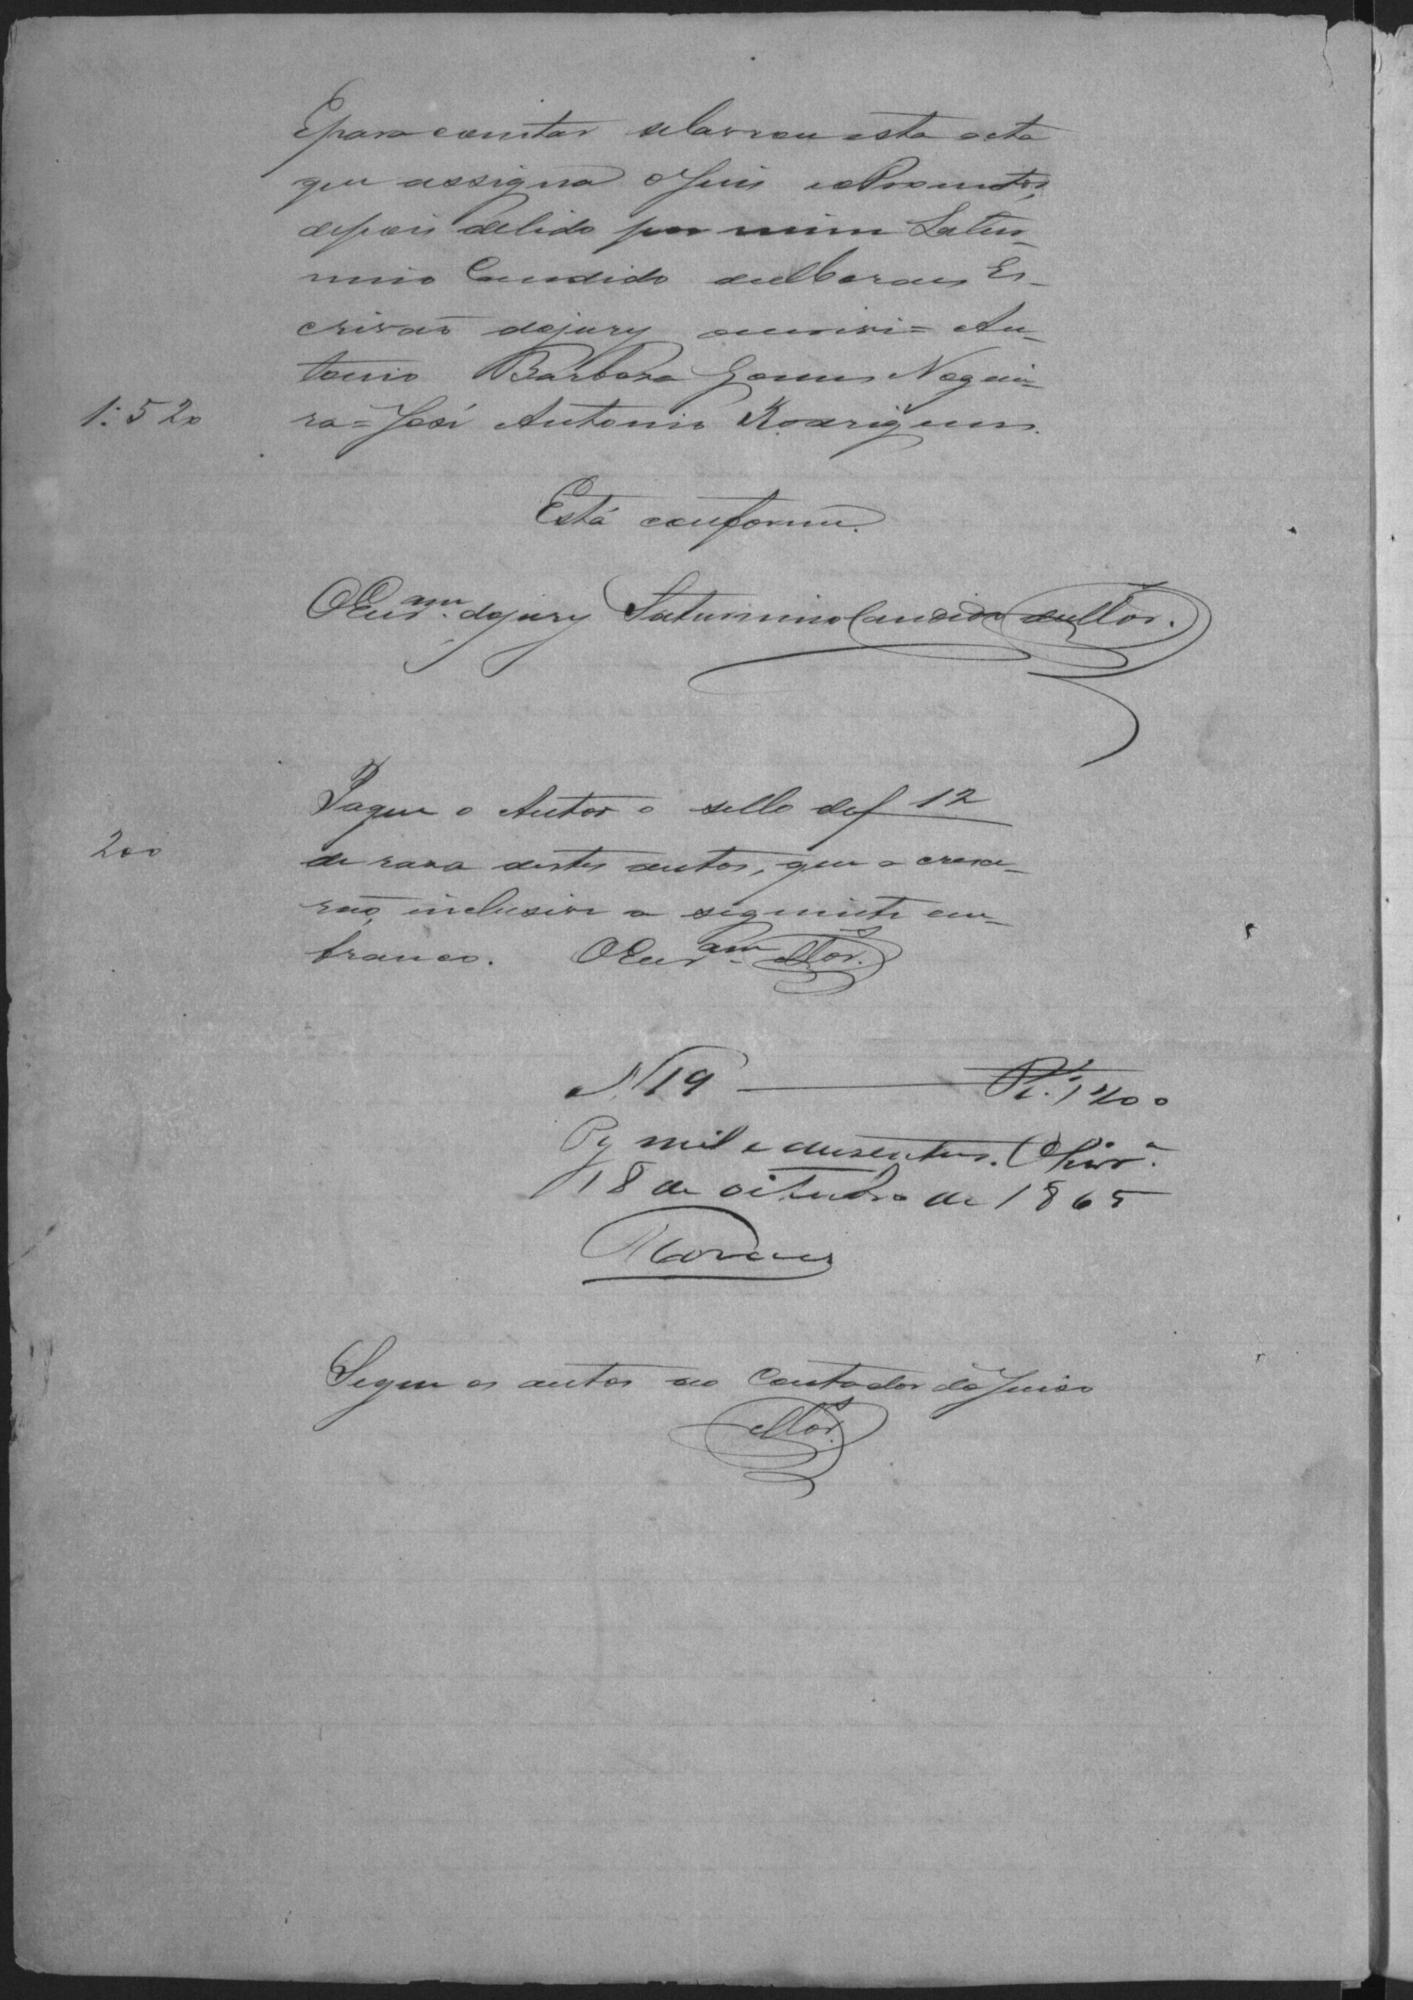 E para constar se lavrou esta acta
que assigna o Juis e o Promotor,
depois de lido por mim Satur-
nino Candido de Moraes Es-
crivão do jury escrivi = An-
tonio Barbosa Gomes Noguei-
1:520 ra = José Antonio Rodrigues.
Está conforme.
O Escr.am do jury Saturnino Candido de Mor.s
Pague o Autor o sello de f 12
200 de rasa destes autos, que a cresce-
rão, inclusive a seguinte em
branco. O Escr.am Mor.s
N 19 Rs. 1200
Pg mil e dusentos.
18 de oitubro de 1865
Moraes
Segue os autos ao Contador do Juiso
Mor.s